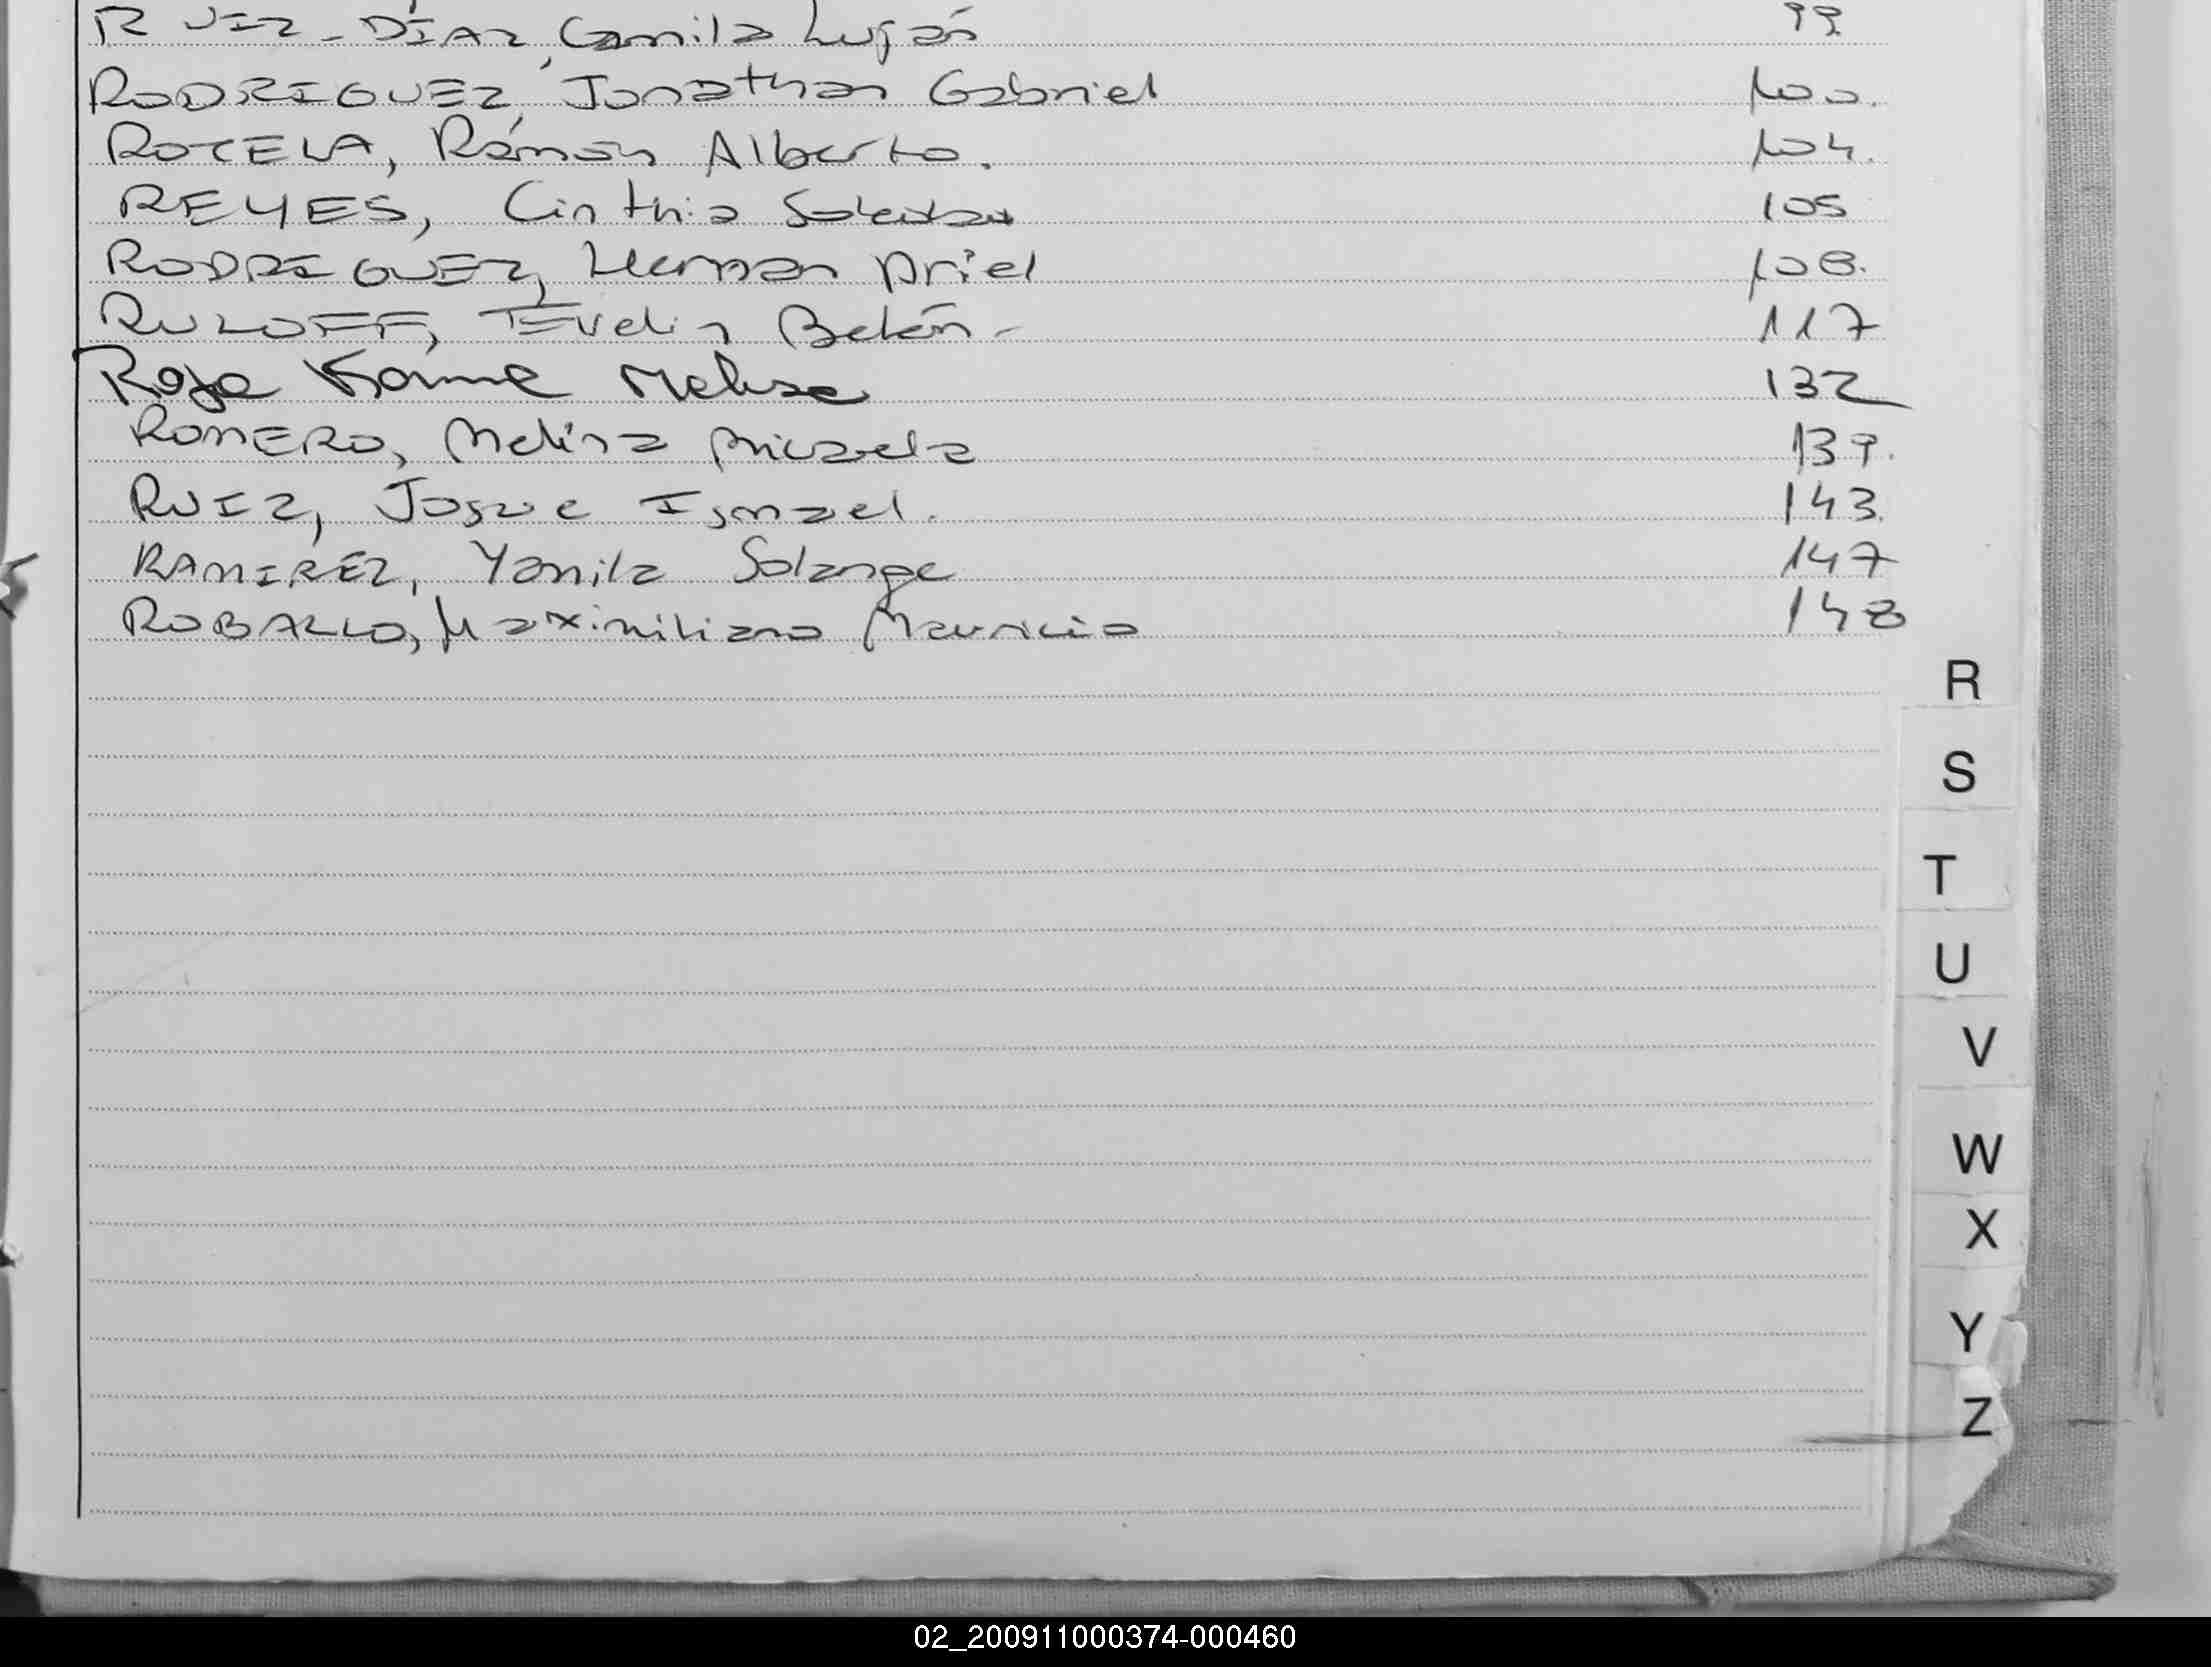 RUIZ-DÍAZ, Camila Luján 99.
RODRIGUEZ, Jonathan Gabriel 100.
ROTELA, Rámon Alberto. 104.
REYES, Cinthia Soledad 105
RODRIGUEZ, Hernan Ariel 108.
RULOFF, Evelin Belén- 117
Roja Karine Melisa 132
ROMERO, Melina Micaela 139.
RUIZ, Josue Ismael. 143.
RAMIREZ, Yamila Solange 147
ROBALLO, Maximiliano Mauricio 148
R
S
T
U
V
W
X
Y
Z
02_200911000374-000460